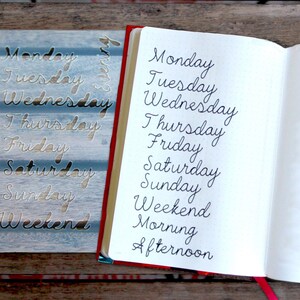 Monday
Tuesday
Wednesday
Thursday
Friday
Saturday
Sunday
Weekend
Monday
Tuesday
Wednesday
Thursday
Friday
Saturday
Sunday
Weekend
Morning
Afternoon